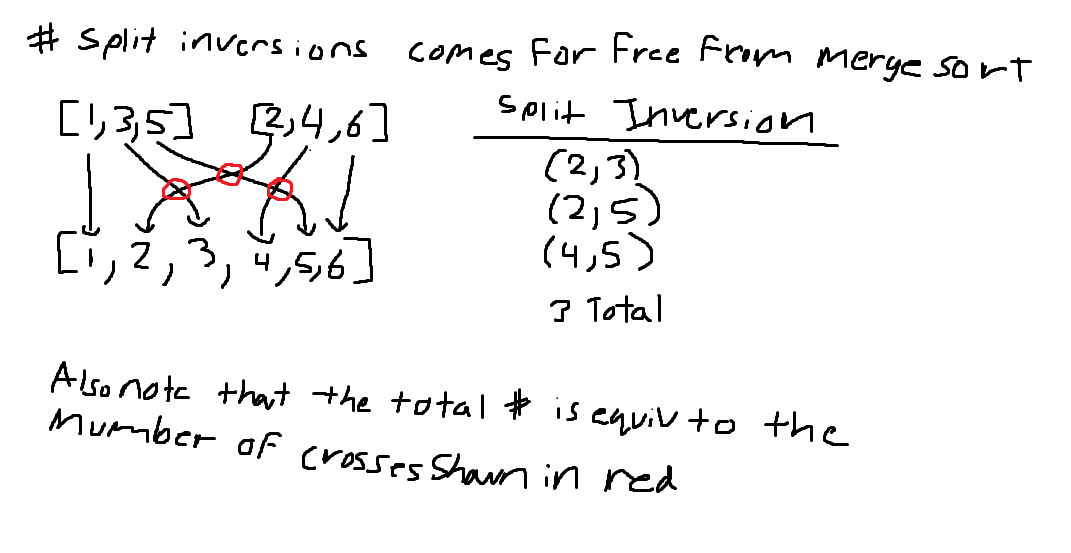 # split inversions comes for free from merge sort
[1,3,5] [2,4,6]
[1,2,3,4,5,6]
Split Inversion
(2,3)
(2,5)
(4,5)
3 Total
Also note that the total # is equiv to the
Number of crosses shown in red